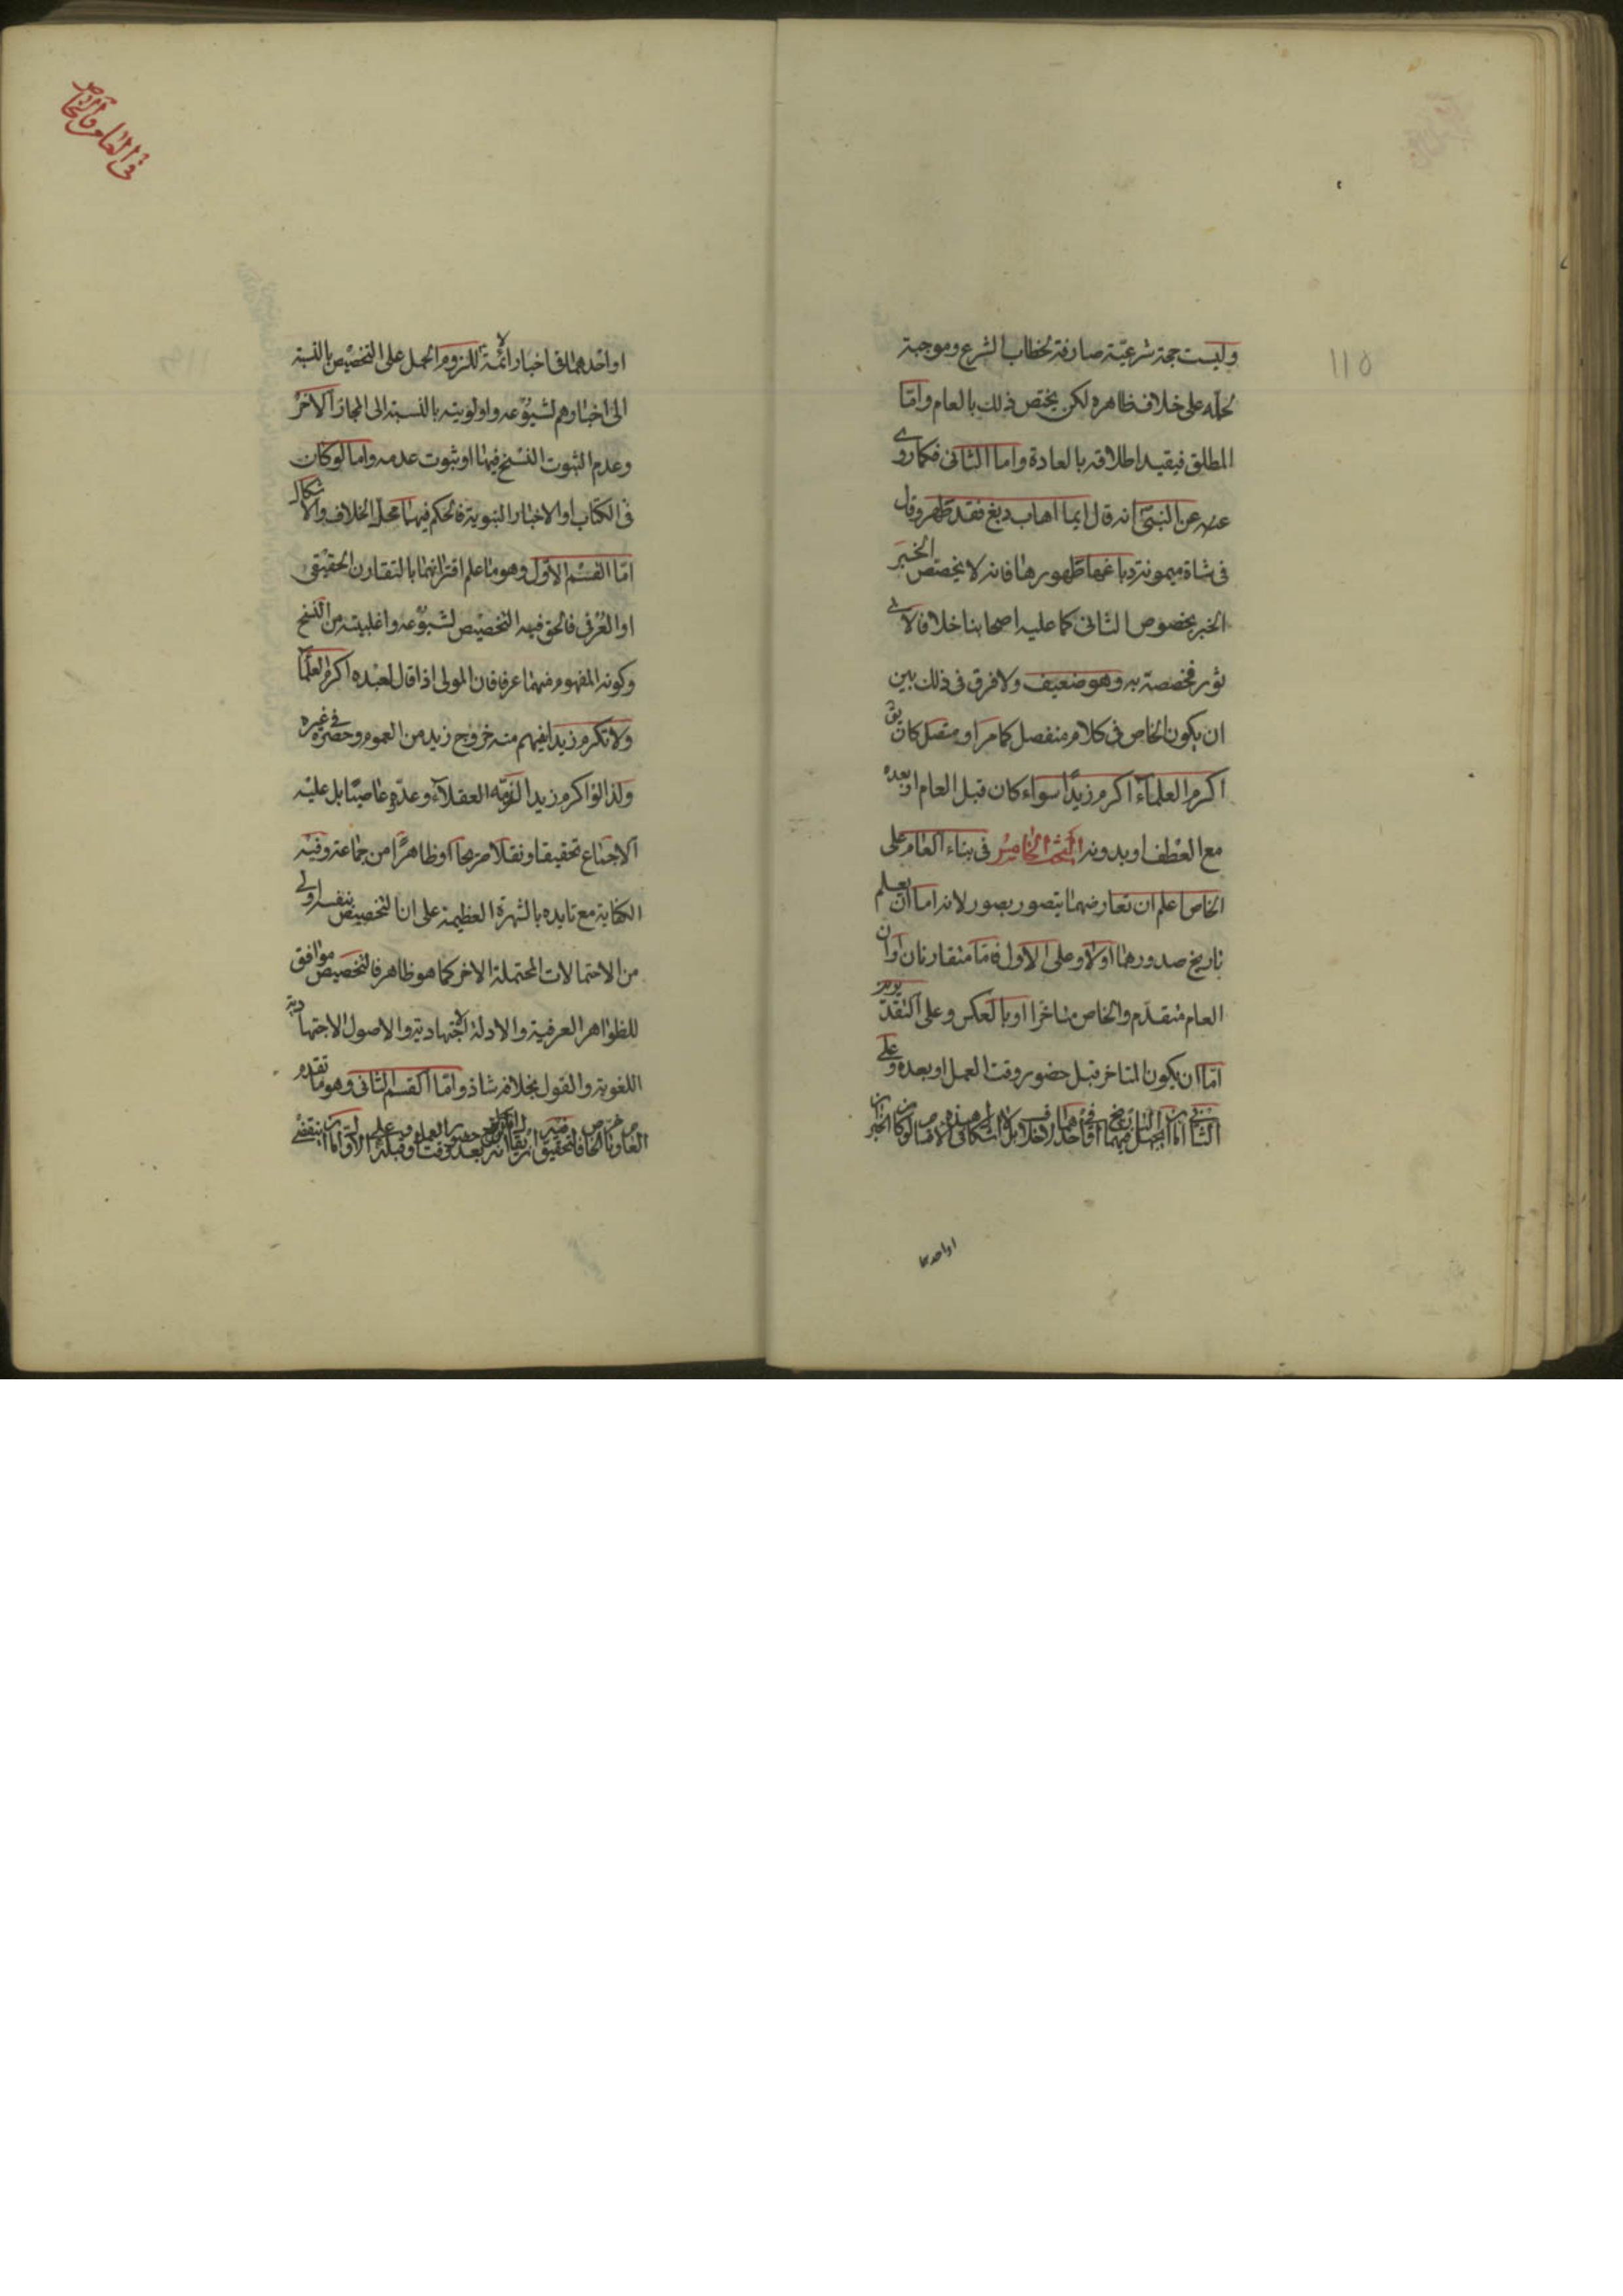 ١١٥
وليست حجة شرعيّة صارفة لخطاب الشرع وموجبة
لحمله على خلاف ظاهره لكن يختص ذلك بالعام وامّا
المطلق فيقيد اطلاقه بالعادة واما الثانى فكما روى
عنه عن النبىّ انه قال ايما اهاب دبغ فقد طهر وقال
فى شاة ميمونة دباغها طهورها فانه لا يختص الخبر
الخبر بخصوص الثانى كما عليه اصحابنا خلافا لابى
ثور فخصصه به وهو ضعيف ولا فرق فى ذلك بين
ان يكون الخاص فى كلام منفصل كما مر او متصل كان يق
اكرم العلماء اكرم زيدًا سواء كان قبل العام او بعده
مع العطف او بدونه البحث الخامس فى بناء العام على
الخاص اعلم ان تعارضهما يتصور بصور لانه اما ان يعلم
تاريخ صدورهما اولا وعلى الاول فامّا متقارنان او ان
العام متقدّم والخاص متاخرا او بالعكس وعلى التقديرين
امّا ان يكون المتاخر قبل حضور وقت العمل او بعده وعلى
الثانى اما ان يجهل التاريخ فيهما او فى احدهما
او احدهما
فى العام والخاص
او احدهما فى اخبار الائمّة للزوم الحمل على التخصيص بالنسبة
الى اخبارهم لشيوعه واولويته بالنسبة الى المجاز الاخر
وعدم الثبوت النسخ فيها او ثبوت عدمه واما لو كان
فى الكتاب او الاخبار النبوية فالحكم فيهما محل الخلاف والاشكال
امّا القسم الاوّل وهو ما علم اقترانهما بالتقارن الحقيقى
او العُرفى فالحق فيه التخصيص لشيوعه واغلبيته من النسخ
وكونه المفهوم منهما عرفا فان المولى اذا قال لعبده اكرم العلماء
ولا تكرم زيدا فيهم منه خروج زيد من العموم وحصره فى غيره
ولذا لو اكرم زيدا لذمّه العقلاء وعدّوه عاصيًا بل عليه
الاجماع تحقيقا ونقلا صريحا او ظاهرًا من جماعة وفيه
الكفاية مع تايده بالشهرة العظيمة على ان التخصيص بنفسه اولى
من الاحتمالات المحتملة الاخر كما هو ظاهر فالتخصيص موافق
للظواهر العرفية والادلة الاجتهادية والاصول الاجتهادية
اللغوية والقول بخلافه شاذ وامّا القسم الثانى وهو ما تقدم